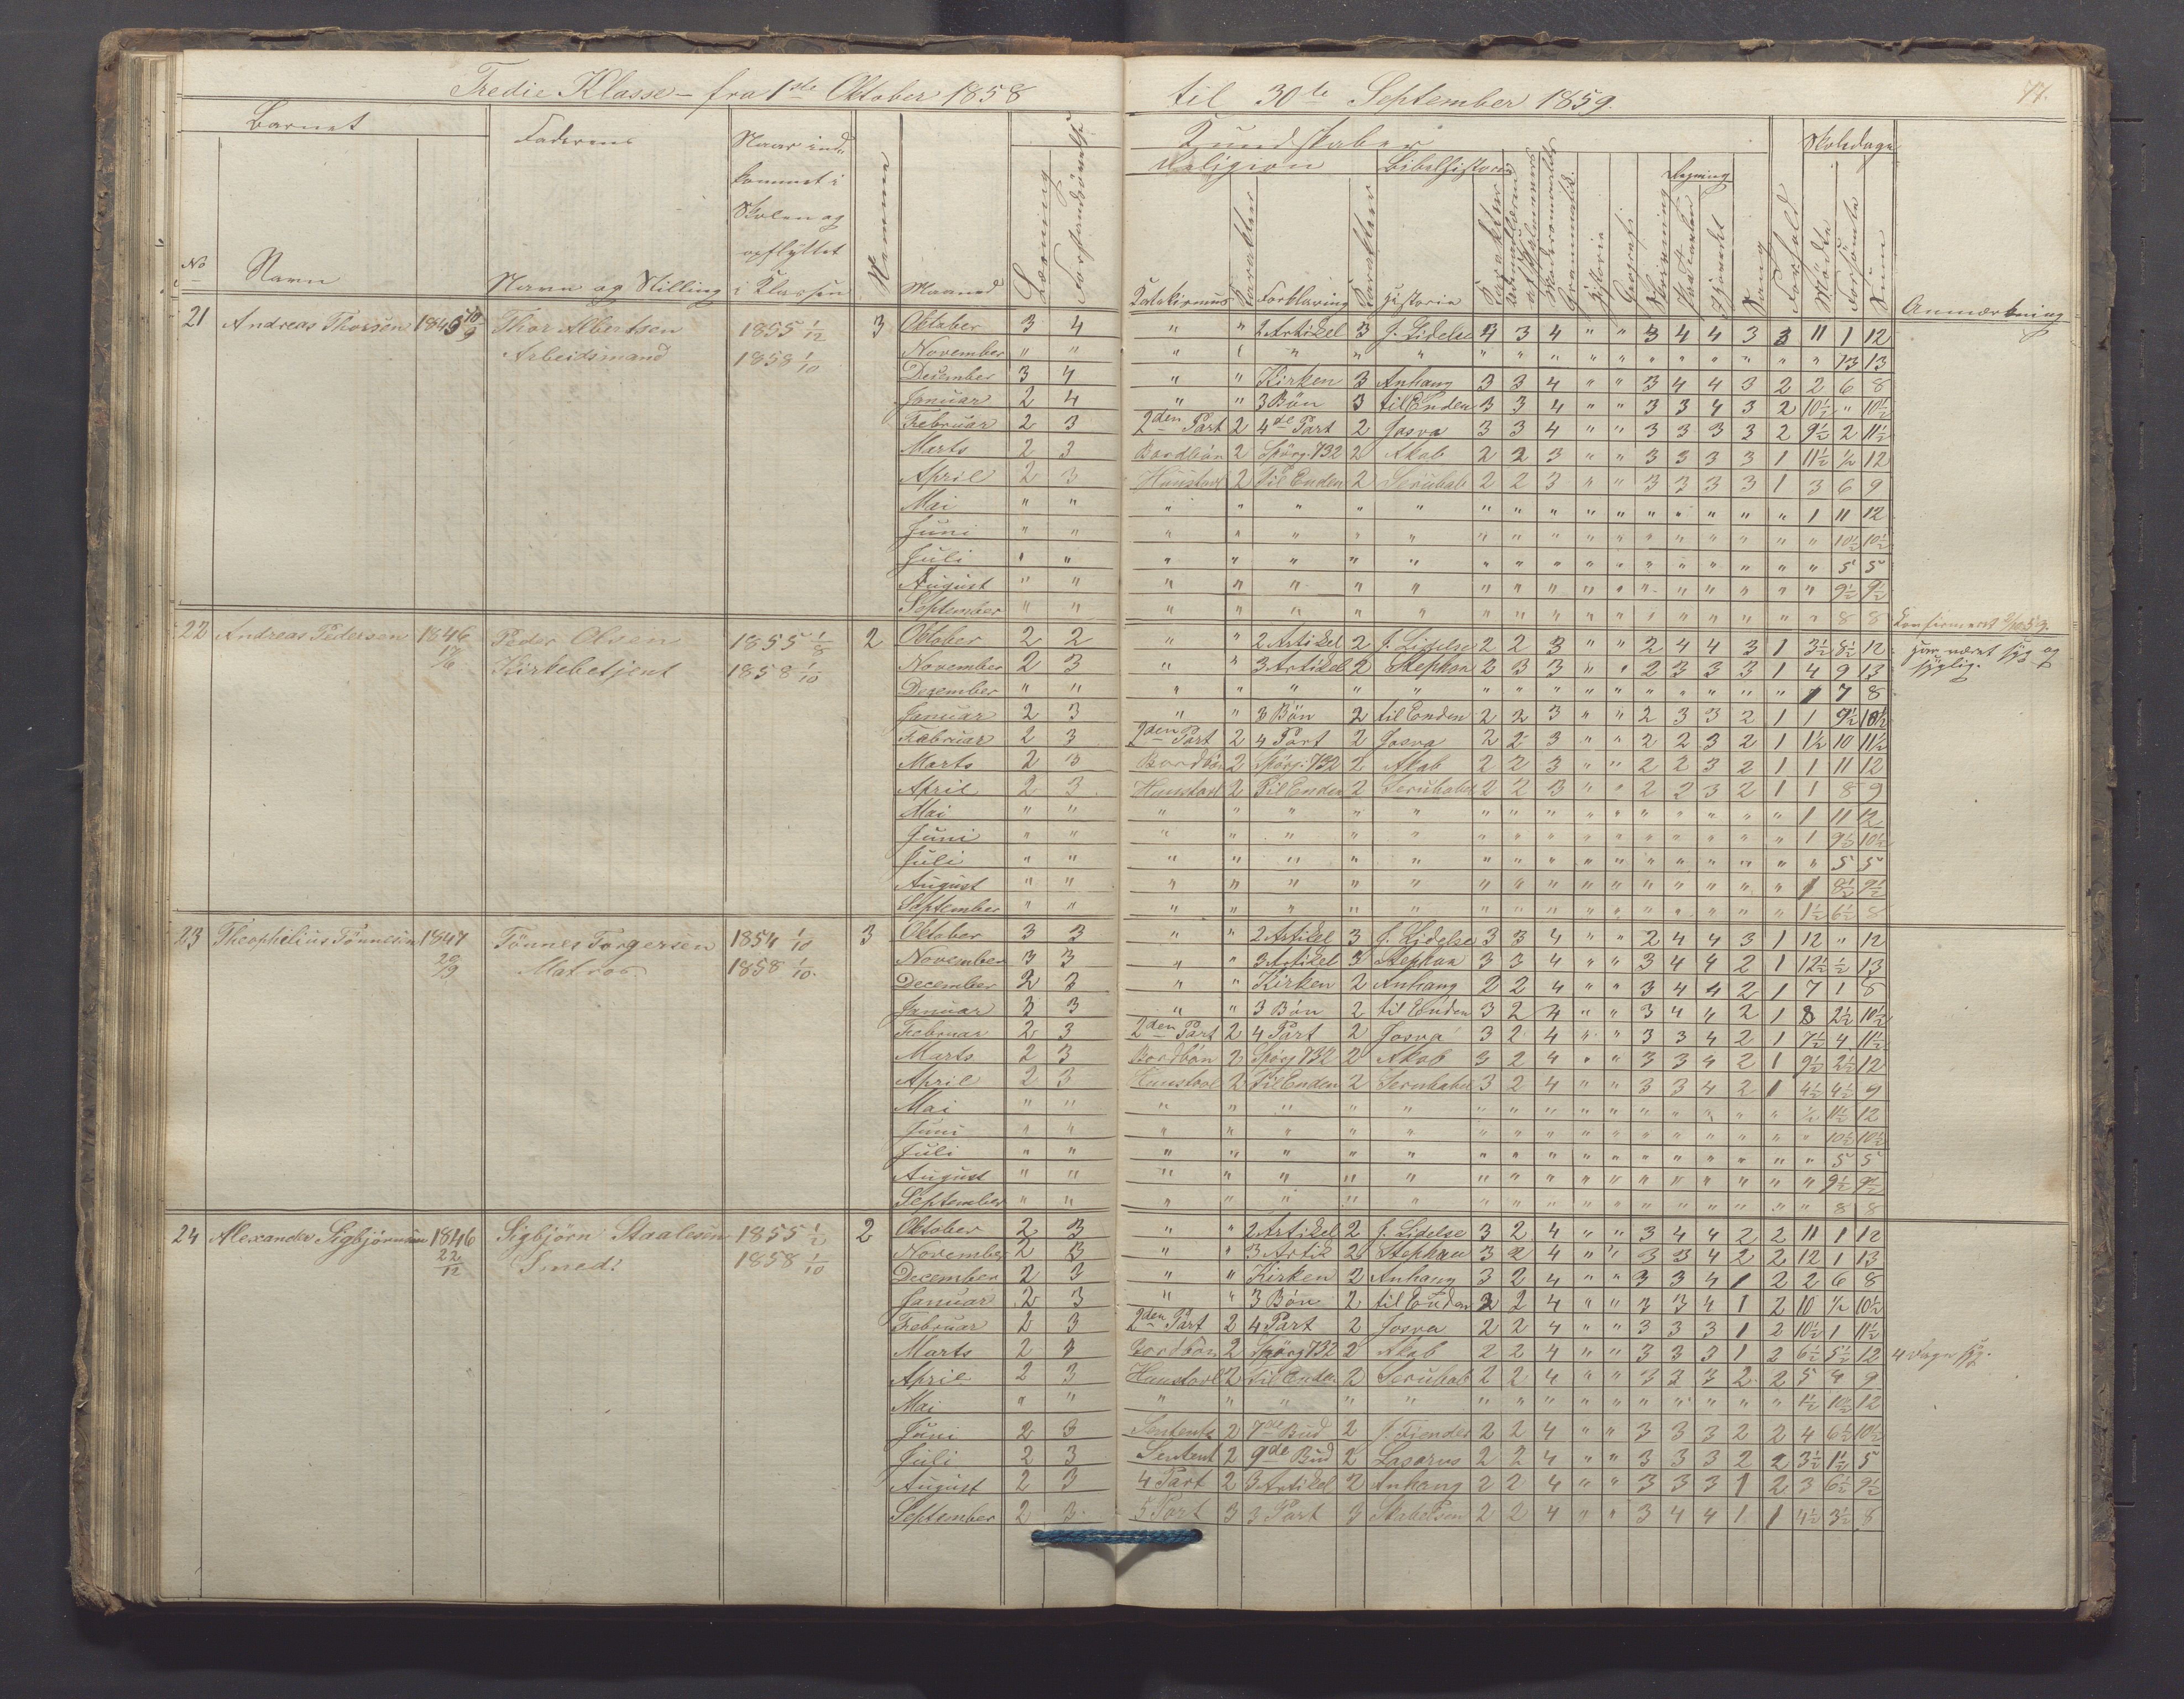 Tredie Klasse - fra 1ste Oktober 1858 til 30te September 1859.
77.
Barnet Faderens Naar ind- Nemme Læsning Forstandsøvelse Kundskaber Skoledage
kommet i Religion Bibelhistorie Regning
Skolen og
opflyttet
No Navn Navn og Stilling i Klassen Maaned Katekismus Karakter Forklaring Karakter Historie Karakter Grammatik Historie Geografi Skrivning Sang Forhold Mødte Forsømte Sum Anmærkning
21 Andreas Thorsen 1845 10/9 Thor Albertsen 1855 1/12 3 Oktober 3 4 " " 2 Artikel 3 J. Lidelse 3 3 4 " " 3 4 4 3 3 11 1 12
Arbeidsmand 1858 1/10 November " " " " " " " " " " " " " " " " " " 13 13
December 3 4 " " Kirken 3 Anhang 3 3 4 " " 3 4 4 3 2 2 6 8
Januar 2 4 " " 3 Bøn 3 til Enden 3 3 4 " " 3 3 4 3 2 10½ " 10½
Februar 2 3 2den Part 2 4de Part 2 Josva 3 3 4 " " 3 3 3 3 2 9½ 2 11½
Marts 2 3 Bordbøn 2 Spørg. 732 2 Akab 2 2 3 " " 3 3 3 3 1 11½ ½ 12
April 2 3 Huustavl 2 Til Enden 2 Serubab 2 2 3 " " 3 3 3 3 1 3 6 9
Mai " " " " " " " " " " " " " " " " " 1 11 12
Juni " " " " " " " " " " " " " " " " " " 10½ 10½
Juli " " " " " " " " " " " " " " " " " " 5 5
August " " " " " " " " " " " " " " " " " " 9½ 9½
September " " " " " " " " " " " " " " " " " " 8 8 Konfirmeret
22 Andreas Pedersen 1846 Peder Olsen 1855 1/8 2 Oktober 2 2 " " 2 Artikel 2 J. Lidelse 2 2 3 " " 2 4 4 3 1 3½ 8½ 12 har været syg og
Kirkebetjent 1858 1/10 November 2 3 " " 3 Artikel 2 Stephan 2 3 3 " " 2 3 3 3 1 4 9 13 syglig.
Dezember " " " " " " " " " " " " " " " " " 1 7 8
Januar 2 3 " " 3 Bøn 2 til Enden 2 2 3 " " 2 3 3 2 1 1 9½ 10½
Februar 2 3 2den Part 2 4 Part 2 Josva 2 2 3 " " 2 2 3 2 1 1½ 10 11½
Marts 2 3 Bordbøn 2 Spørg. 732 2 Akab 2 2 3 " " 2 2 3 2 1 1 11 12
April 2 3 Huustavl 2 Til Enden 2 Serubabel 2 2 3 " " 2 2 3 2 1 1 8 9
Mai " " " " " " " " " " " " " " " " " 1 11 12
Juni " " " " " " " " " " " " " " " " " 1 9½ 10½
Juli " " " " " " " " " " " " " " " " " " 5 5
August " " " " " " " " " " " " " " " " " 1 8½ 9½
September " " " " " " " " " " " " " " " " " 1½ 6½ 8
23 Theophilius Tønnesen 1847 Tönnes Torgersen 1854 1/10 3 Oktober 3 3 " " 2 Artikel 3 J. Lidelse 3 3 4 " " 2 4 4 3 1 12 " 12
20/9 Matros 1858 1/10. November 3 3 " " 3 Artikel 3 Stephan 3 3 4 " " 3 4 4 2 1 12½ ½ 13
December 2 3 " " Kirken 2 Anhang 2 2 4 " " 3 4 4 2 1 7 1 8
Januar 3 3 " " 3 Bøn 2 til Enden 3 2 4 " " 3 4 4 2 1 8 2½ 10½
Februar 2 3 2den Part 2 4 Part 2 Josva 3 2 4 " " 3 3 4 2 1 7½ 4 11½
Marts 2 3 Bordbøn 2 Spørg 732 2 Akab 3 2 4 " " 3 3 4 2 1 9½ 2½ 12
April 2 3 Huustavl 2 Til Enden 2 Serubabel 3 2 4 " " 3 3 4 2 1 4½ 4½ 9
Mai " " " " " " " " " " " " " " " " " ½ 11½ 12
Juni " " " " " " " " " " " " " " " " " " 10½ 10½
Juli " " " " " " " " " " " " " " " " " " 5 5
August " " " " " " " " " " " " " " " " " " 9½ 9½
September " " " " " " " " " " " " " " " " " " 8 8
24 Alexander Sigbjørnsen 1846 Sigbjörn Staalesen 1855 1/2 2 Oktober 2 3 " " 2 Artikel 2 J. Lidelse 3 2 4 " " 3 4 4 2 2 11 1 12
22/12 Smed 1858 1/10 November 2 3 " " 3 Artik 2 Stephan 3 2 4 " " 3 3 4 2 2 12 1 13
December 2 3 " " Kirken 2 Anhang 3 2 4 " " 3 3 4 1 2 2 6 8
Januar 2 3 " " 3 Bøn 2 til Enden 2 2 4 " " 3 3 4 1 2 10 ½ 10½
Februar 2 3 2den Part 2 4 Part 2 Josva 2 2 4 " " 3 3 3 1 2 10½ 1 11½
Marts 2 3 Bordbøn 2 Spørg 732 2 Akab 2 2 4 " " 3 3 3 1 2 6½ 5½ 12 4 Dage syg.
April 2 3 Huustavl 2 til Enden 2 Serubab 2 2 4 " " 3 3 3 2 2 5 4 9
Mai " " " " " " " " " " " " " " " " " 1½ 10½ 12
Juni 2 3 Sentents 2 7de Bud 2 J. Fiender 2 2 4 " " 3 3 3 2 2 4 6½ 10½
Juli 2 3 Sentent 2 9de Bud 2 Lasarus 2 2 4 " " 3 3 3 2 2 3½ 1½ 5
August 2 3 4 Part 2 3 Artikel 2 Anhang 2 2 4 " " 3 3 3 1 2 3 6½ 9½
September 2 3 5 Part 3 3 Part 3 Skabelsen 2 2 4 " " 3 4 4 1 1 4½ 3½ 8